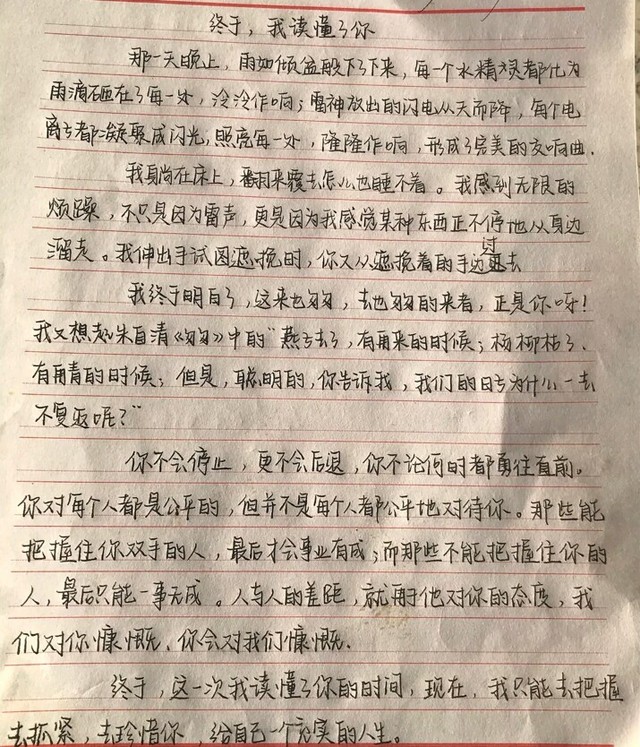 终于，我读懂了你
那一天晚上，雨如倾盆般下了下来，每一个水精灵都化为
雨滴砸在了每一处，泠泠作响；雷神放出的闪电从天而降，每个电
离子都凝聚成闪光，照亮每一处，隆隆作响，形成了完美的交响曲.
我身尚在床上，翻来覆去怎么也睡不着。我感到无限的
烦躁，不只是因为雷声，更是因为我感觉某种东西正不停地从身边
溜走。我伸出手试图遮挽时，你又从遮挽着的手边过去
我终于明白了，这来也匆匆，去也匆匆的来者，正是你呀！
我又想起朱自清《匆匆》中的“燕子去了，有再来的时候；杨柳枯了、
有再青的时候；但是，聪明的，你告诉我，我们的日子为什么一去
不复返呢？”
你不会停止，更不会后退，你不论何时都勇往直前。
你对每个人都是公平的，但并不是每个人都公平地对待你。那些能
把握住你双手的人，最后才会事业有成；而那些不能把握住你的
人，最后只能一事无成。人与人的差距，就用他对你的态度，我
们对你慷慨、你会对我们慷慨.
终于，这一次我读懂了你的时间，现在，我只能去把握
去抓紧，去珍惜你，给自己一个充实的人生。